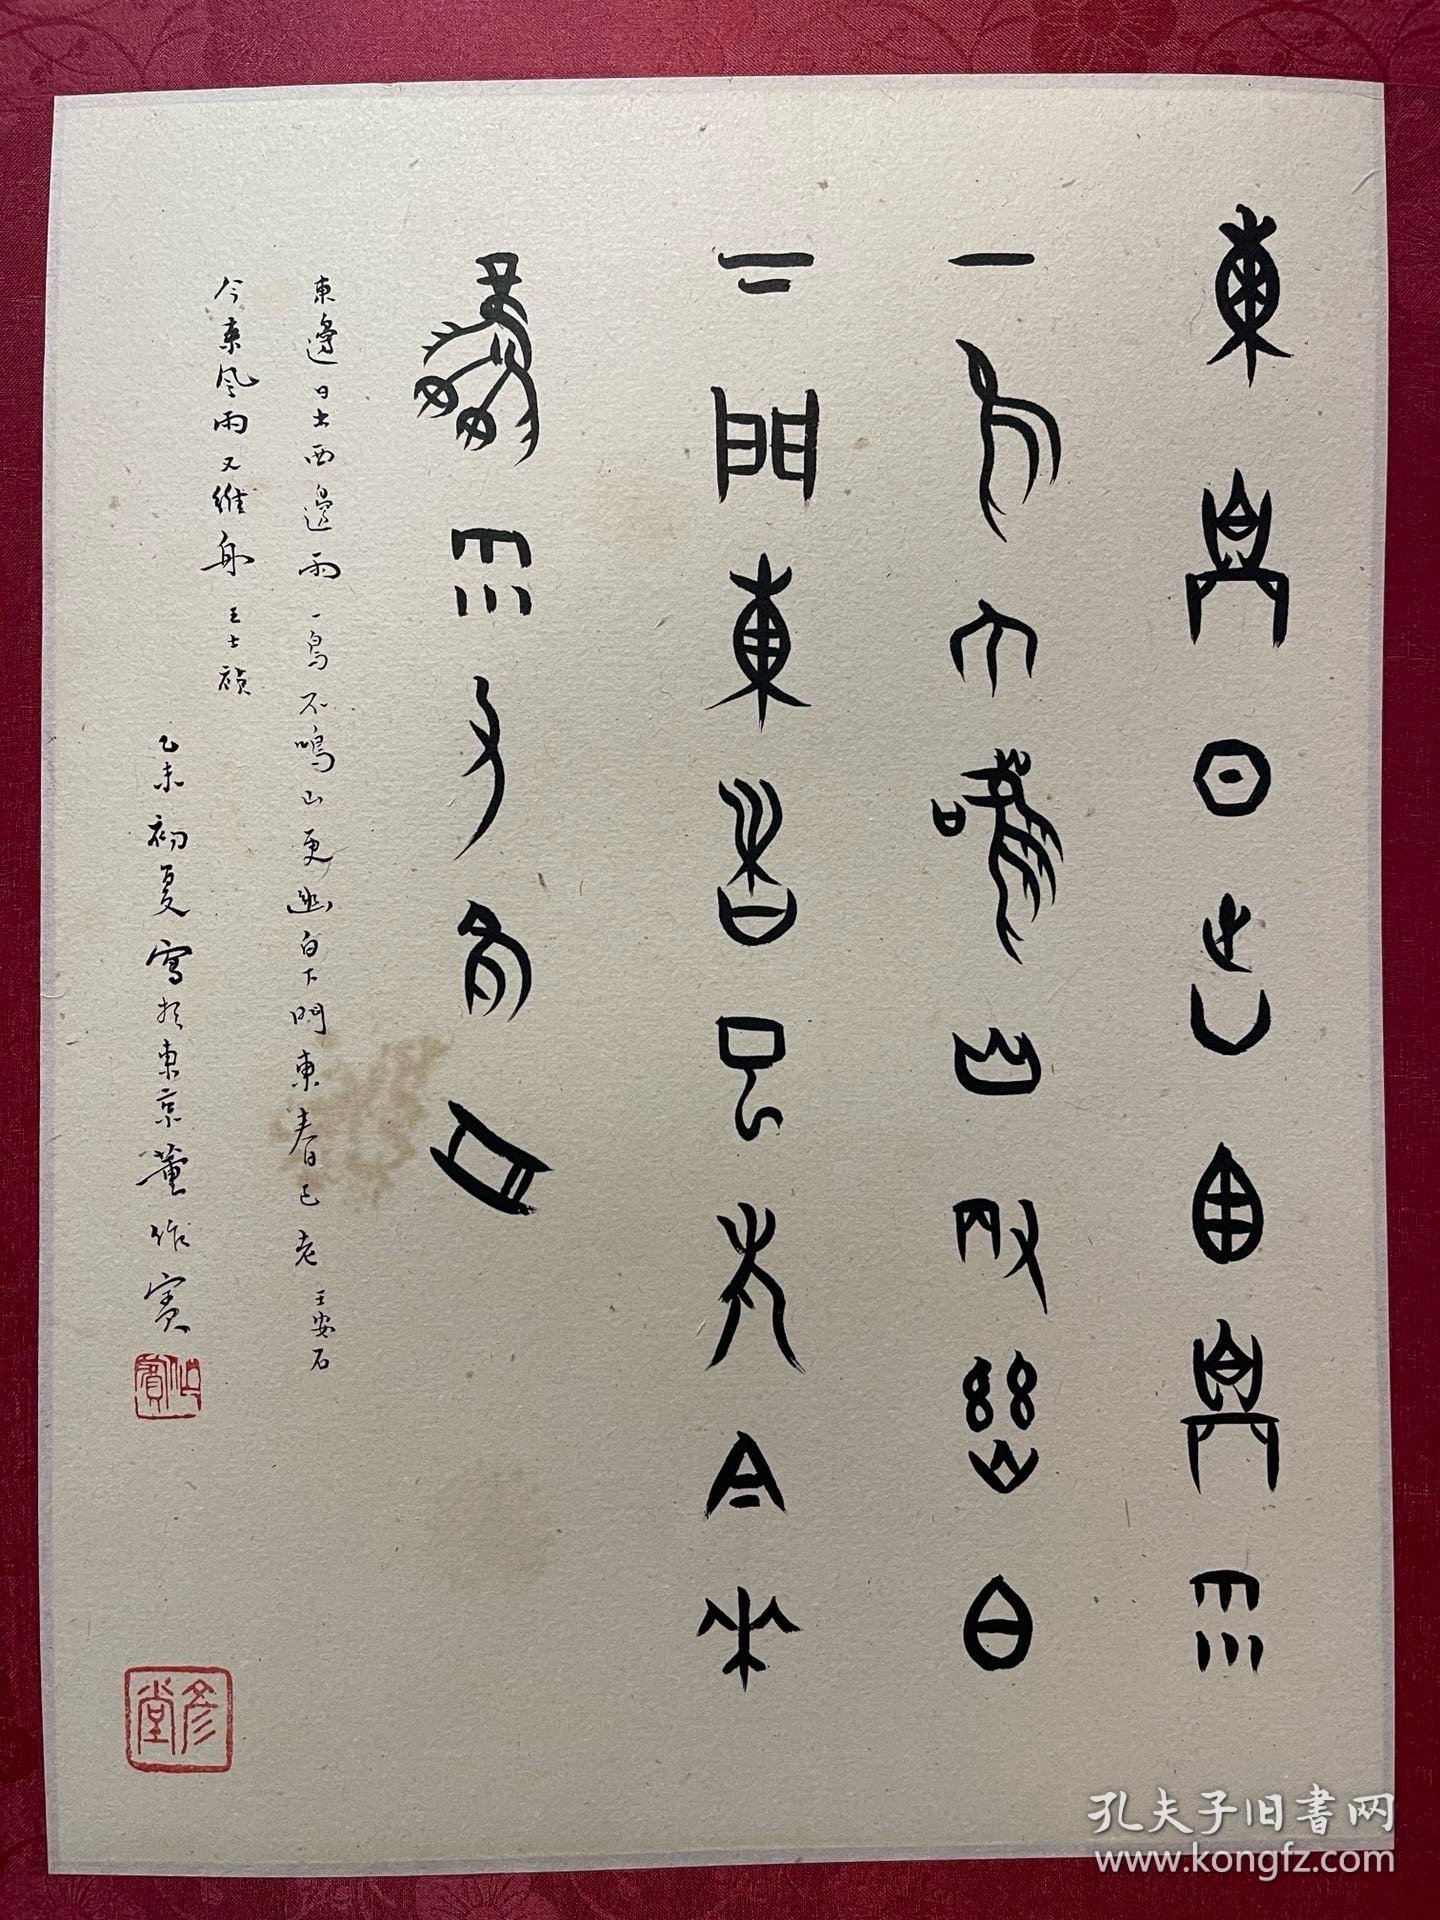 東邊日出西邊雨
一鳥不鳴山更幽白
下門東春已老今來
風雨又維舟
東邊日出西邊雨一鳥不鳴山更幽白下門東春已老王安石
今來風雨又維舟王士禎
乙未初夏寫於東京董作賓
作賓
彥堂
孔夫子旧书网
www.kongfz.com